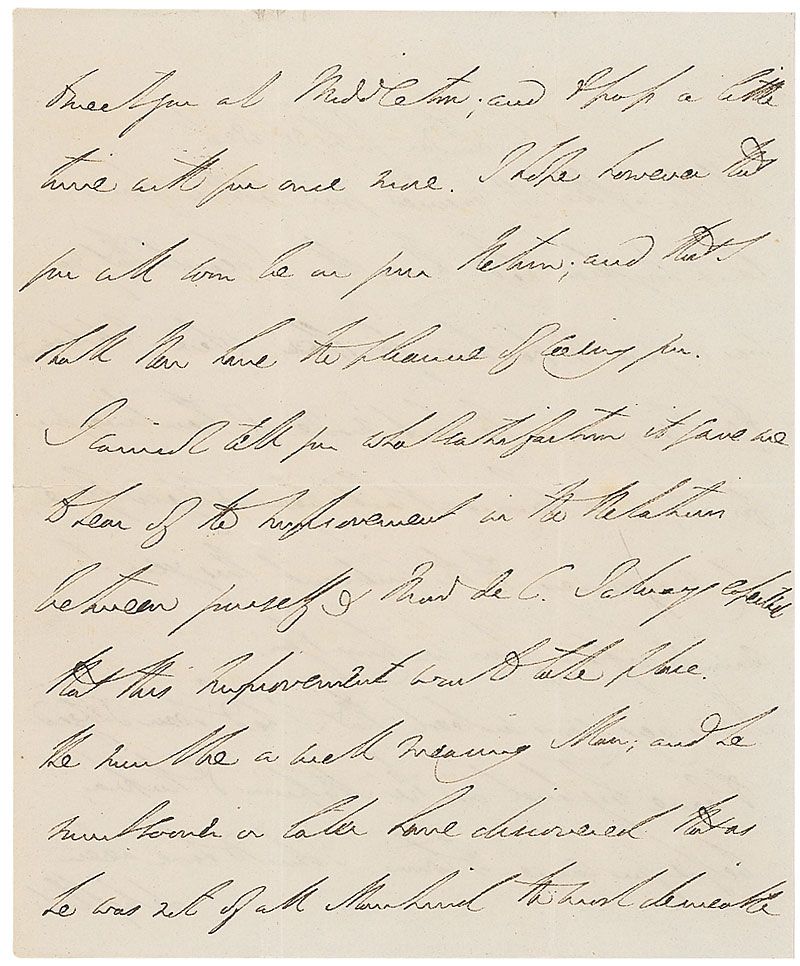 to meet you at Middleton; and to pass a little
time with you once more. I hope however that
you will soon be on your Return; and that I
shall then have the pleasure of seeing you.
I cannot tell you what satisfaction it gave me
to hear of the Improvement in the Relations
between yourself & Mons de C. I always expected
that this Improvement would take place.
He must be a well meaning Man; and he
must sooner or later have discovered that as
he was not of all Mankind the most